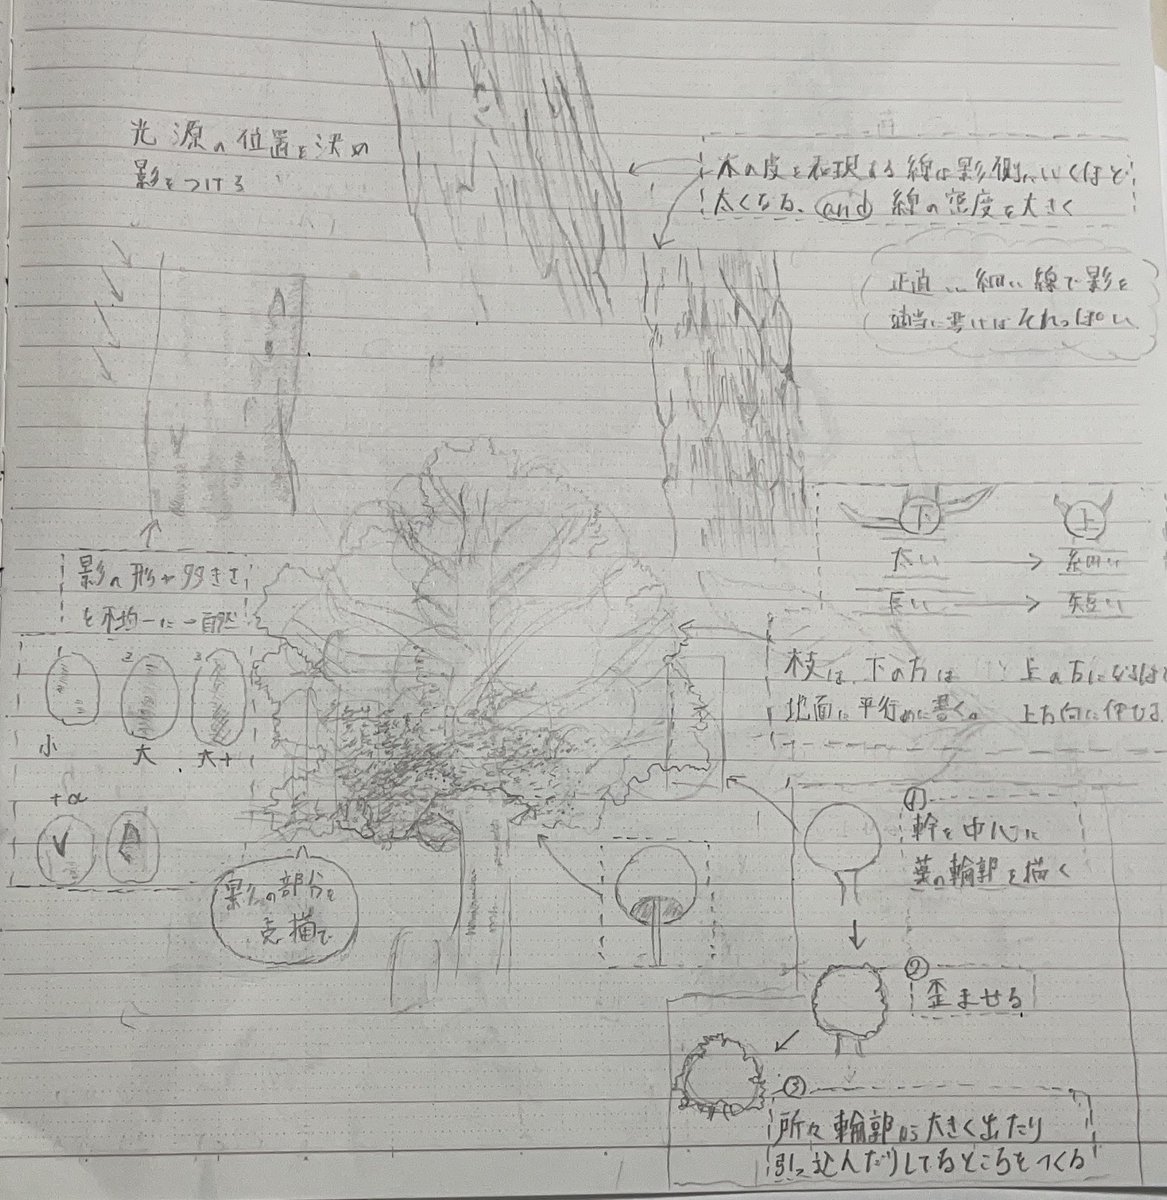 光源の位置を決め
影をつける
木の皮を表現する線は影側にいくほど
太くなる、and 線の密度を大きく
正直、細い線で影を
適当に書けばそれっぽい
下
上
太い → 細い
長い → 短い
影の形や多きさ
を不均一に→自然
枝は、下の方は
地面に平行めに書く。
上の方になるほど
上方向に伸びる
1
2
3
小
大
大+
+α
影の部分を
点描で
①
幹を中心に
葉の輪郭を描く
②
歪ませる
③
所々輪郭から大きく出たり
引っ込んだりしてるところをつくる